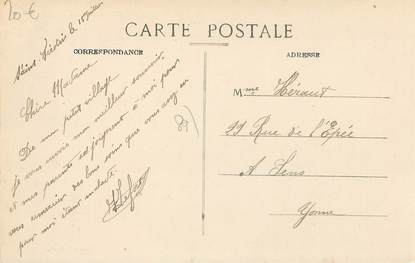 20€
CARTE POSTALE
CORRESPONDANCE
ADRESSE
le 15 juillet
Chère Madame
De mon petit village
je vous envoie mon meilleur souvenir
et mes parents se joignent à moi pour
vous remercier des bons soins que vous avez eu
pour moi étant malade.
89
Mme Hérault
29 Rue de l'Epée
A Sens
Yonne